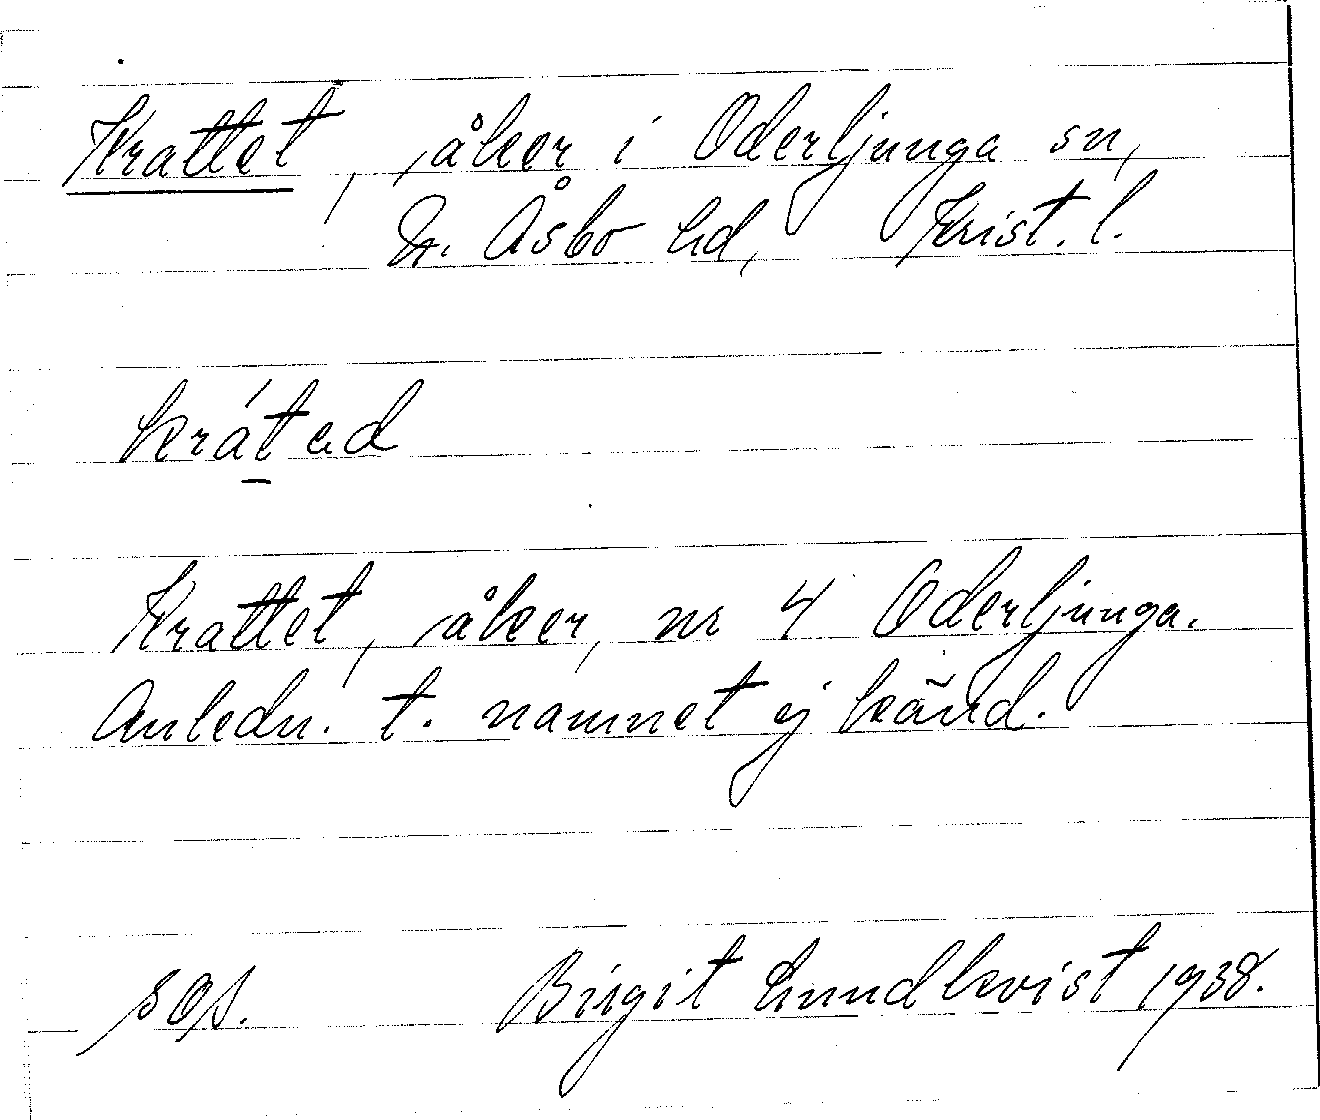 Krattet, åker i Oderljunga sn,
N. Åsbo hd, Krist. l.
kráted
Krattet, åker, nr 4 Oderljunga.
Anledn. t. namnet ej känd.
Birgit Lundkvist 1938.